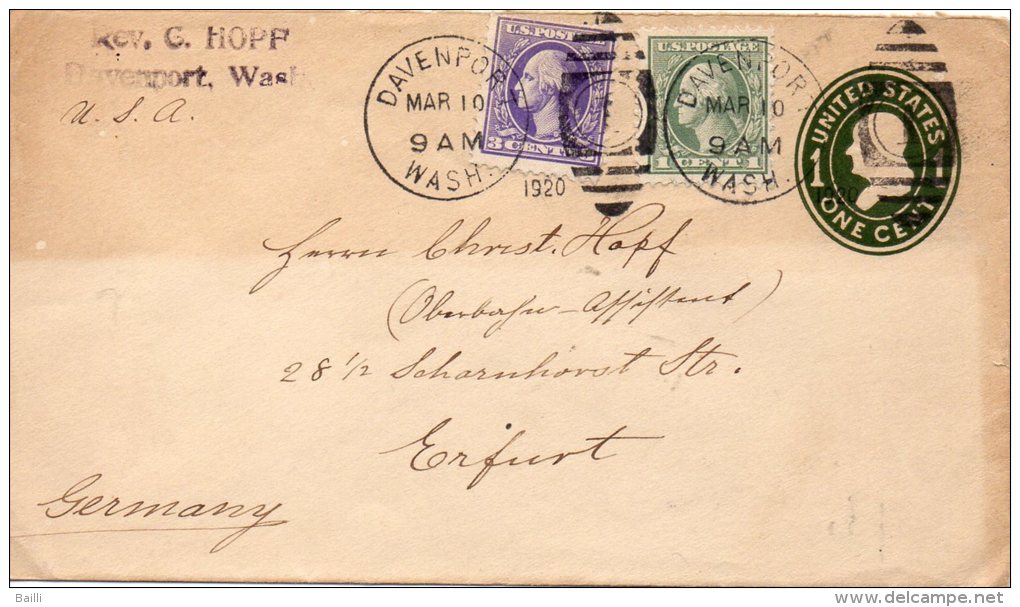 Rev. C. HOPF
Davenport, Wash.
U. S. A.
DAVENPORT
MAR 10
9 AM
WASH.
1920
U.S. POSTAGE
3 CENTS 3
U.S. POSTAGE
1 CENT 1
DAVENPORT
MAR 10
9 AM
WASH.
1920
UNITED STATES
1 1
ONE CENT
Herrn Christ. Hopf
(Oberbahn-Assistent)
28 1/2 Scharnhorst Str.
Erfurt
Germany
Bailli
delcampe.net